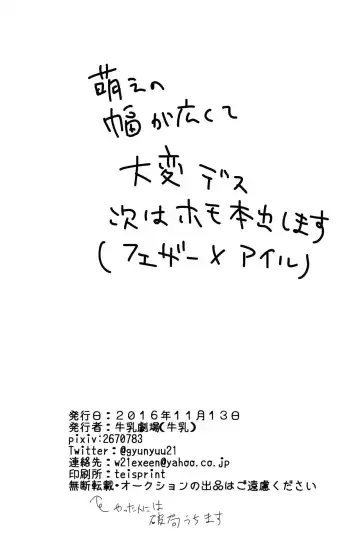 萌えの
幅が広くて
大変デス
次はホモ本出します
(フェザー×アイル)
発行日：２０１６年１１月１３日
発行者：牛乳劇場(牛乳)
pixiv:2670783
Twitter：@gyunyuu21
連絡先：w21exeen@yahoo.co.jp
印刷所：teisprint
無断転載・オークションの出品はご遠慮ください
やったんには
破局うちます